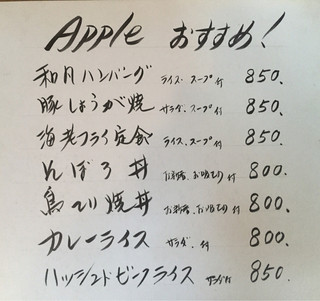 Apple おすすめ!
和風ハンバーグ ライス、スープ付 850.
豚しょうが焼 サラダ、スープ付 850.
海老フライ定食 ライス、スープ付 850.
そぼろ丼 お新香、お吸物付 800.
鳥てり焼丼 お新香、お吸物付 800.
カレーライス サラダ付 800.
ハッシュドビーフライス サラダ付 850.